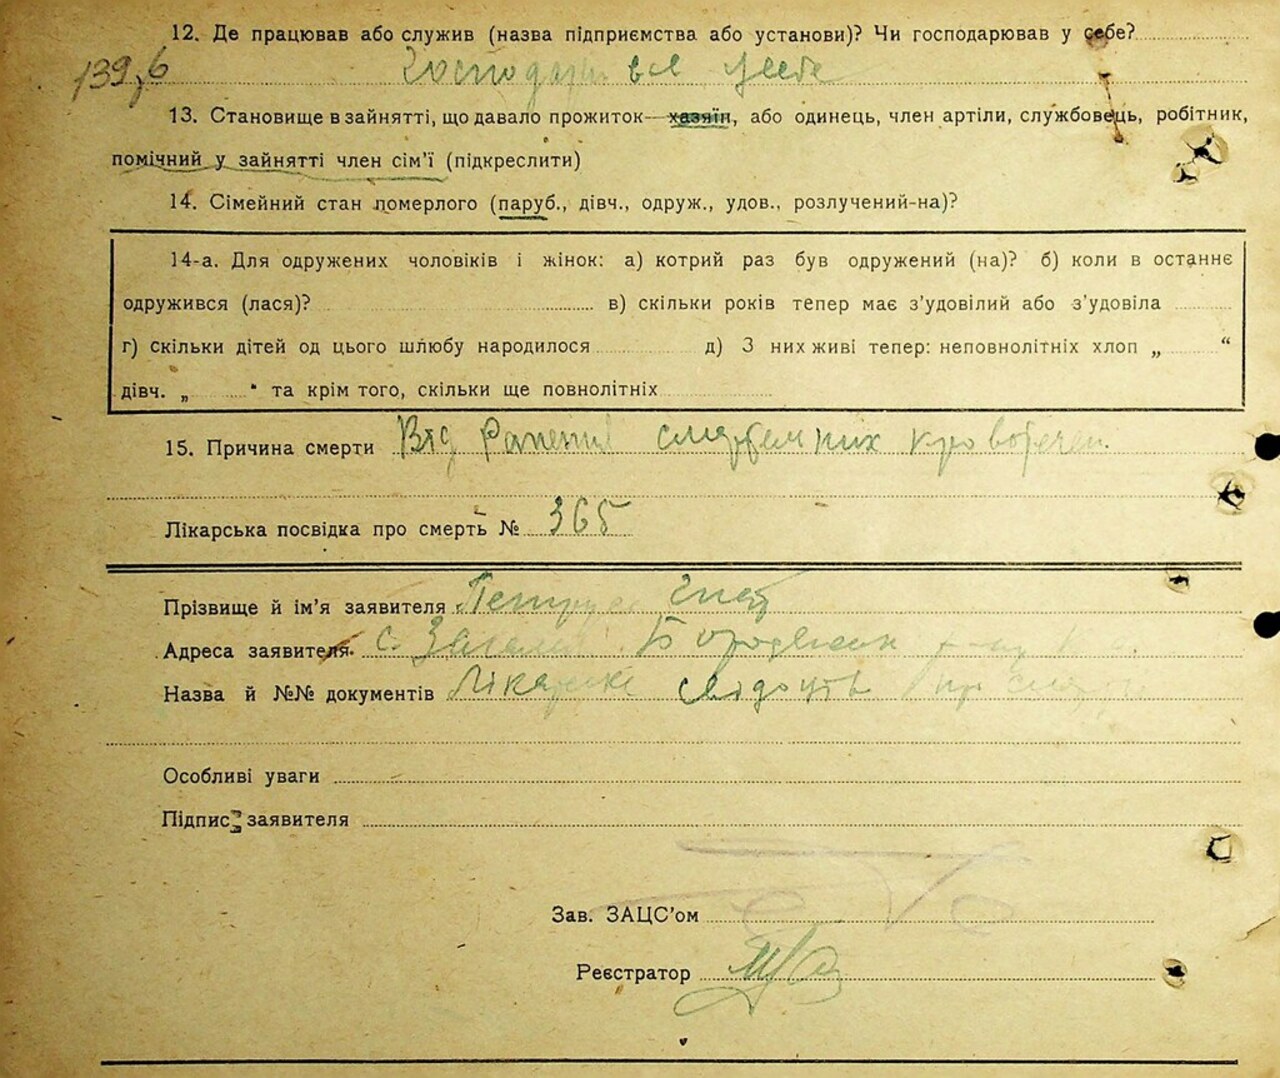 12. Де працював або служив (назва підприємства або установи)? Чи господарював у себе?
139,6 Господарив в себе
13. Становище в зайнятті, що давало прожиток—хазяїн, або одинець, член артілі, службовець, робітник,
помічний у зайнятті член сім'ї (підкреслити)
14. Сімейний стан померлого (паруб., дівч., одруж., удов., розлучений-на)?
14-а. Для одружених чоловіків і жінок: а) котрий раз був одружений (на)? б) коли в останнє
одружився (лася)? в) скільки років тепер має з'удовілий або з'удовіла
г) скільки дітей од цього шлюбу народилося д) З них живі тепер: неповнолітніх хлоп „ “
дівч. „ “ та крім того, скільки ще повнолітніх
15. Причина смерти Від смертельних
Лікарська посвідка про смерть № 365
Прізвище й ім'я заявителя
Адреса заявителя. с.
Назва й №№ документів Лікарське про
Особливі уваги
Підпис заявителя
Зав. ЗАЦС'ом
Реєстратор